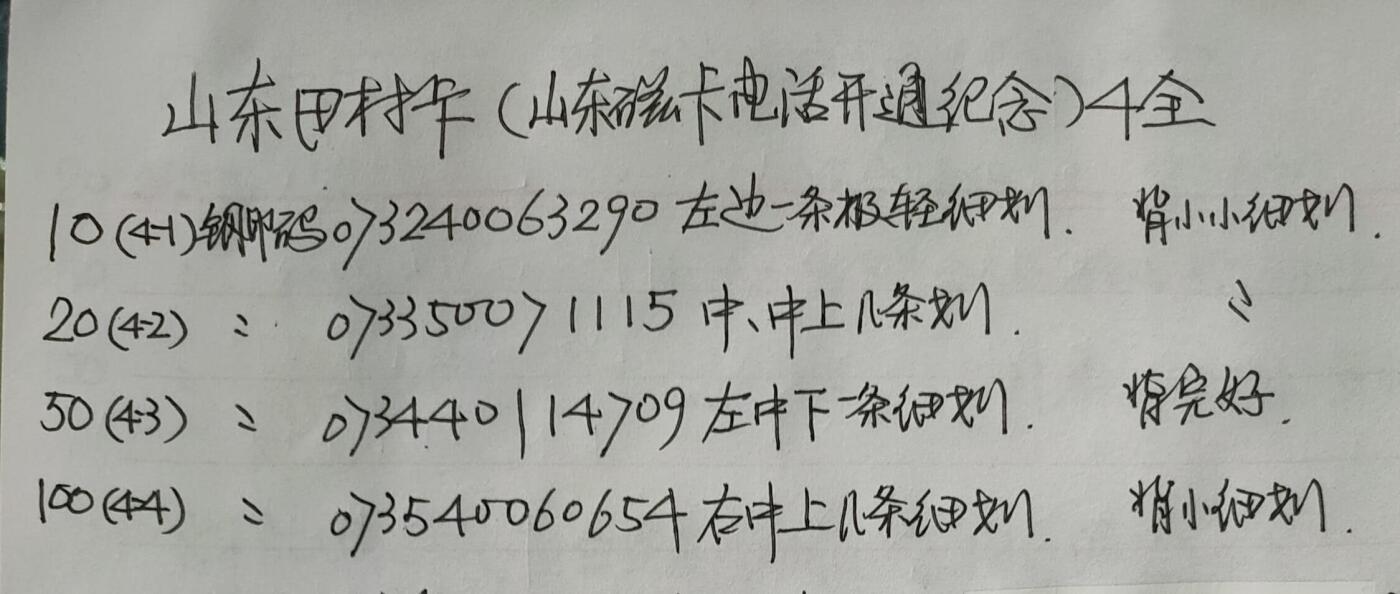 山东田村卡（山东磁卡电话开通纪念）4全
10(4-1)钢印码073240063290左边一条极轻细划. 背小小细划.
20(4-2) 〃 073350071115中、中上几条划. 〃
50(4-3) 〃 073440114709左中下一条细划. 背完好.
100(4-4) 〃 073540060654右中上几条细划. 背小细划.